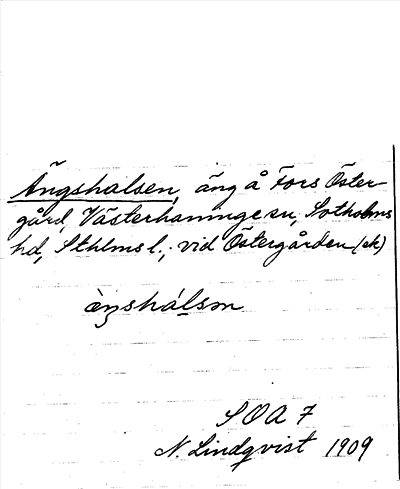 Ängshalsen, äng å Fors Öster-
gård, Västerhaninge sn, Sotholms
hd, Sthlms l., vid Östergården (ek)
èŋshálsm
SOA 7
N. Lindqvist 1909